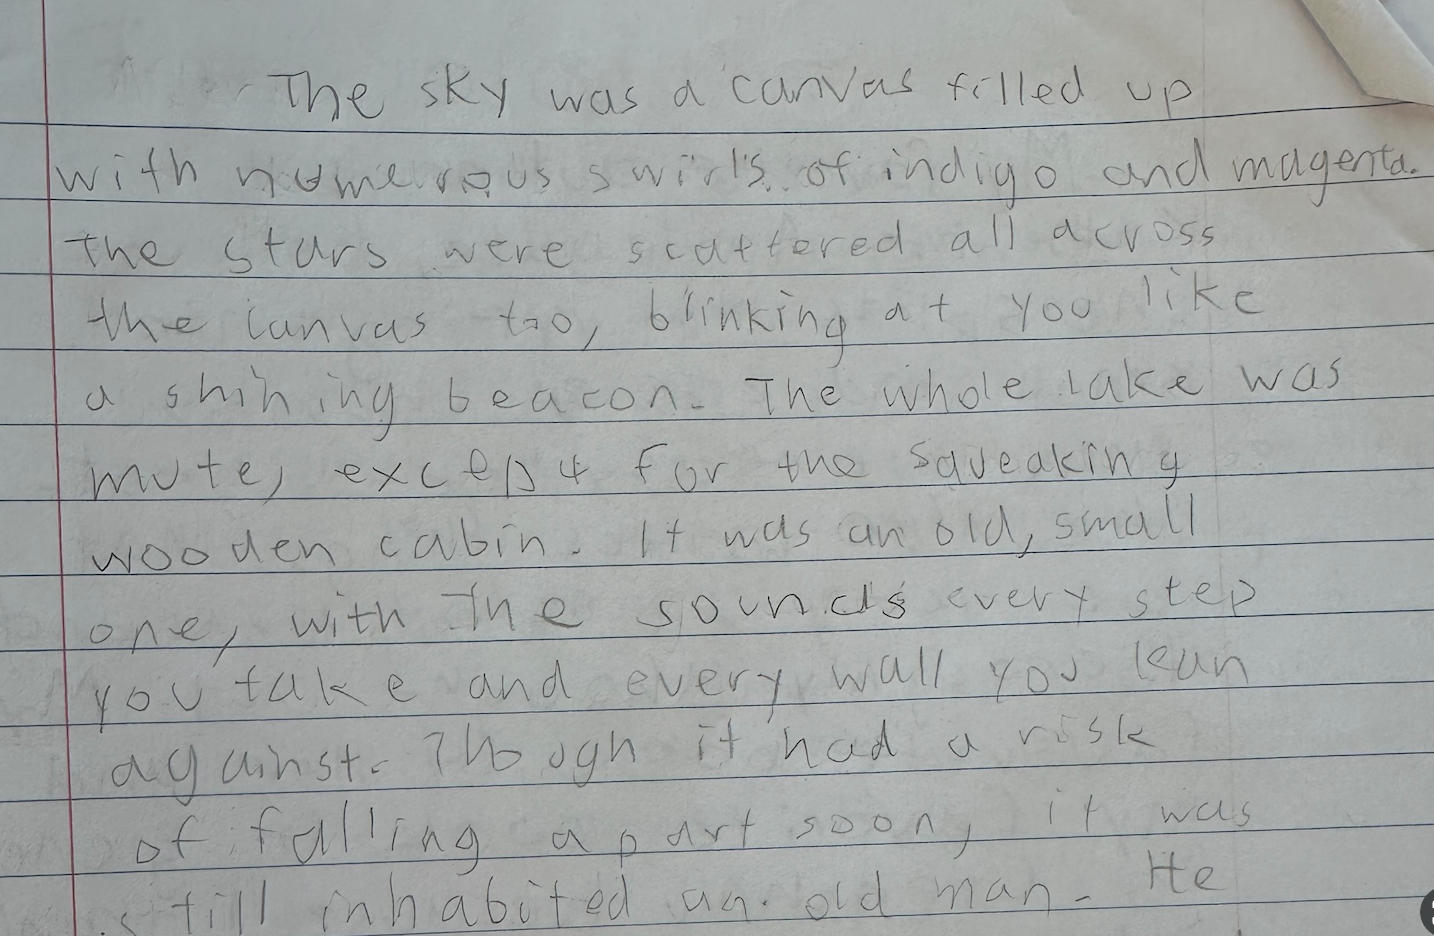 The sky was a canvas filled up
with numerous swirls of indigo and magenta.
the stars were scattered all across
the canvas too, blinking at you like
a shining beacon. The whole lake was
mute, except for the squeaking
wooden cabin. It was an old, small
one, with the sounds every step
you take and every wall you lean
against. Though it had a risk
of falling apart soon, it was
still inhabited an old man. He